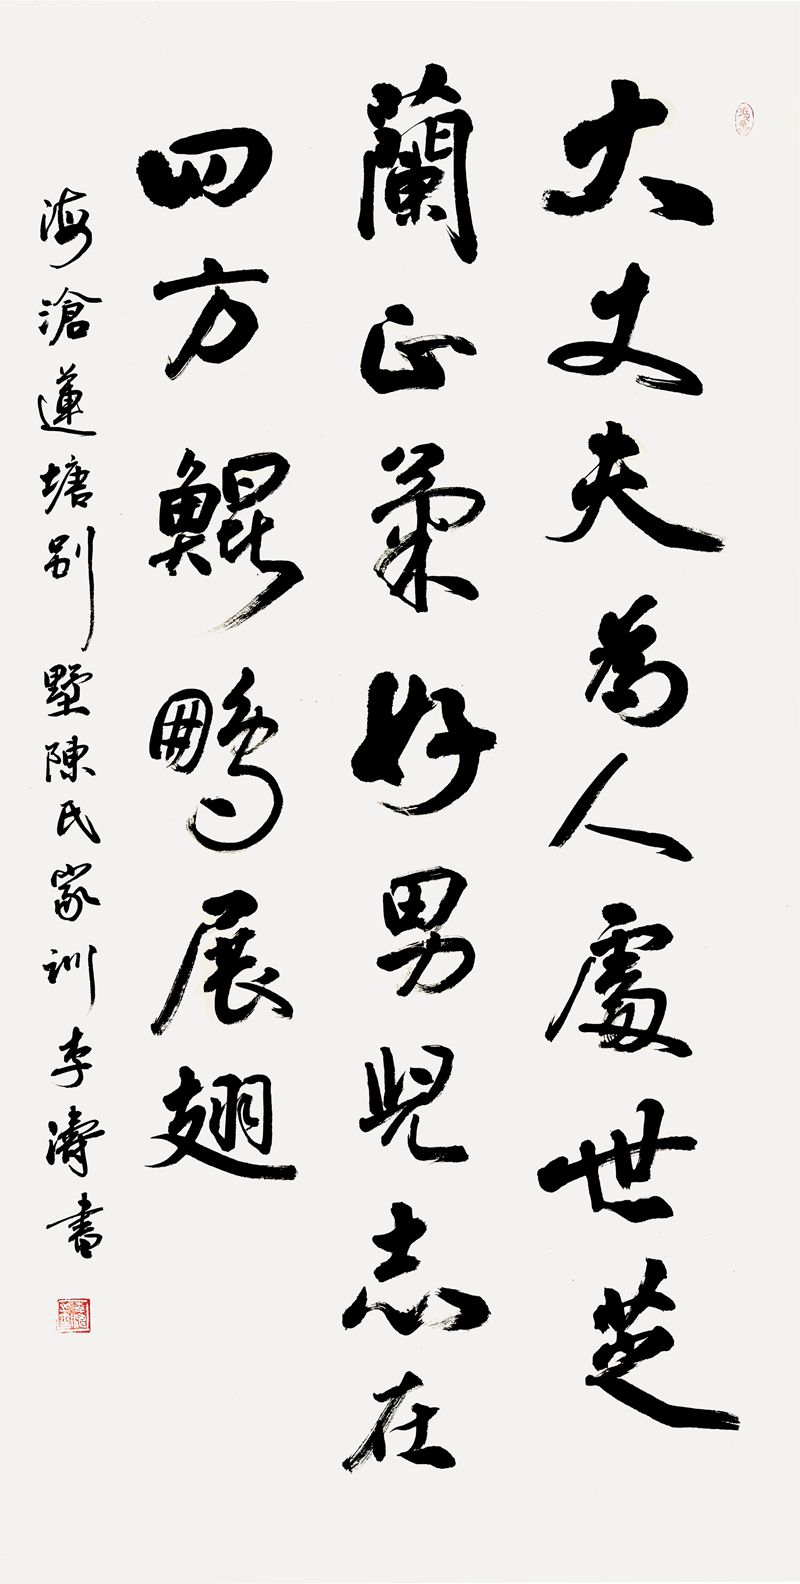 大丈夫為人處世芝
蘭正氣好男兒志在
四方鯤鵬展翅
海滄蓮塘別墅陳氏家訓李濤書